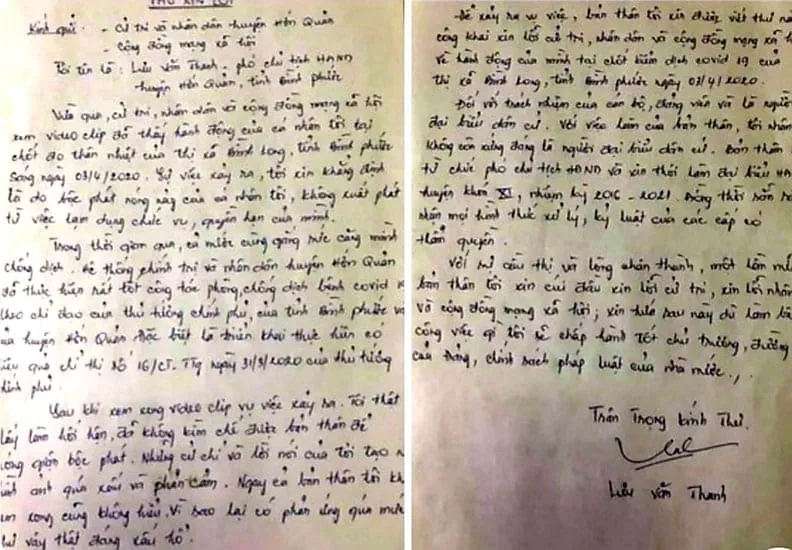 THƯ XIN LỖI
Kính gửi: - Cử tri và nhân dân huyện Hớn Quản
- Cộng đồng mạng xã hội
Tôi tên là: Lưu Văn Thanh - phó chủ tịch HĐND
huyện Hớn Quản, tỉnh Bình Phước
Vừa qua, cử tri, nhân dân và cộng đồng mạng xã hội
xem video clip đã thấy hành động của cá nhân tôi tại
chốt đo thân nhiệt của thị xã Bình Long, tỉnh Bình Phước
sáng ngày 03/4/2020. Sự việc xảy ra, tôi xin khẳng định
là do bộc phát nóng nảy của cá nhân tôi, không xuất phát
từ việc lạm dụng chức vụ, quyền hạn của mình.
Trong thời gian qua, cả nước cùng gắng sức căng mình
chống dịch. Hệ thống chính trị và nhân dân huyện Hớn Quản
đã thực hiện rất tốt công tác phòng, chống dịch bệnh covid 1
theo chỉ đạo của thủ tướng chính phủ, của tỉnh Bình Phước và
của huyện Hớn Quản. Đặc biệt là triển khai thực hiện có
iệu quả chỉ thị số 16/CT.TTg ngày 31/3/2020 của thủ tướng
hính phủ.
Sau khi xem xong video clip vụ việc xảy ra. Tôi thật
lấy làm hối hận, đã không kìm chế được bản thân để
óng giận bộc phát. Những cử chỉ và lời nói của tôi tạo n
ình ảnh quá xấu và phản cảm. Ngay cả bản thân tôi kh
em xong cũng không hiểu. Vì sao lại có phản ứng quá mức
hư vậy thật đáng xấu hổ.
Để xảy ra vụ việc, bản thân tôi xin được viết thư nà
công khai xin lỗi cử tri, nhân dân và cộng đồng mạng xã h
về hành động của mình tại chốt kiểm dịch covid 19 của
thị xã Bình Long, tỉnh Bình Phước ngày 03/4/2020.
Đối với trách nhiệm của cán bộ, đảng viên và là người
đại biểu dân cử. Với việc làm của bản thân, tôi nhận
không còn xứng đáng là người đại biểu dân cử. Bản thân
từ chức phó chủ tịch HĐND và xin thôi làm đại biểu HĐ
huyện khóa XI, nhiệm kỳ 2016 - 2021. Đồng thời sẵn sà
nhận mọi hình thức xử lý, kỷ luật của các cấp có
thẩm quyền.
Với sự cầu thị và lòng chân thành, một lần nữa
bản thân tôi xin cúi đầu xin lỗi cử tri, xin lỗi nhân
và cộng đồng mạng xã hội; xin hứa sau này dù làm bấ
công việc gì tôi sẽ chấp hành tốt chủ trương, đường
của Đảng, chính sách pháp luật của nhà nước./.
Trân trọng kính thư.
Lưu Văn Thanh